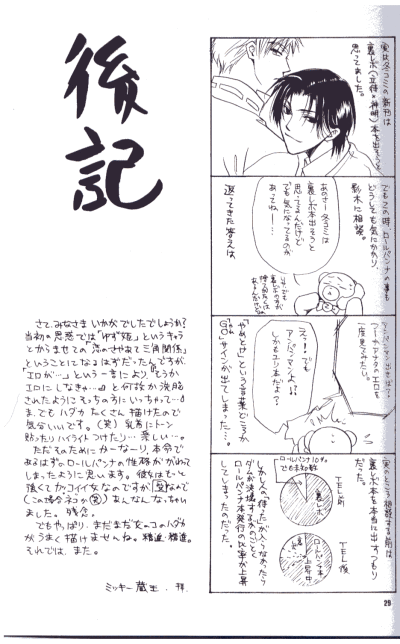 後記
実は冬コミの新刊は
裏レボ(立侍×神明)本を出そうと
思ってました。
でもこの時、ロールパンナの事も
どうしても気にかかり、
影木に相談。
あのさー冬コミは
裏レボ本出そうと
思ってるんだけど
でも気になってるのが
あってねー…
返ってきた答えは
見てみたい。
えっ!? でも
アンパンマンよ!?
しかもユリ本だよ?
「やめとけ」という言葉どころか
「GO」サインが出てしまった…。
実のところ相談する前は
裏レボ本を本当に出すつもり
だった。
ロールパンナ10%
でも未知数
裏レボ
TEL前
TEL後
ロールパンナ本
上昇中
ロールパンナ本発行の比率が上昇
してしまったのだった。
さて、みなさまいかがでしたでしょうか?
当初の思惑では「ゆず姫」というキャラ
とからませての「恋のさやあて三角関係」
ということになるはずだったんですが、
「エロが…」という一言により、「そうか
エロにしなきゃ…」とか何か洗脳
されたようにそっちの方にいっちゃって…
ま、でもハダカたくさん描けたので
気分いいです。(笑) 乳首にトーン
貼ったりハイライトつけたり…楽しい…。
ただそのためにかーなーり、本命で
あるはずのロールパンナの性格が変わって
しまったように思います。彼女はもっと
強くてカッコイイ女なのですが受なので
(この場合ネコか(笑)) あんなんなっちゃい
ました。残念。
でもやっぱり、まだまだ女のコのハダカ
がうまく描けませんね。精進・精進。
それでは、また。
ミッキー蔵王.拝.
29